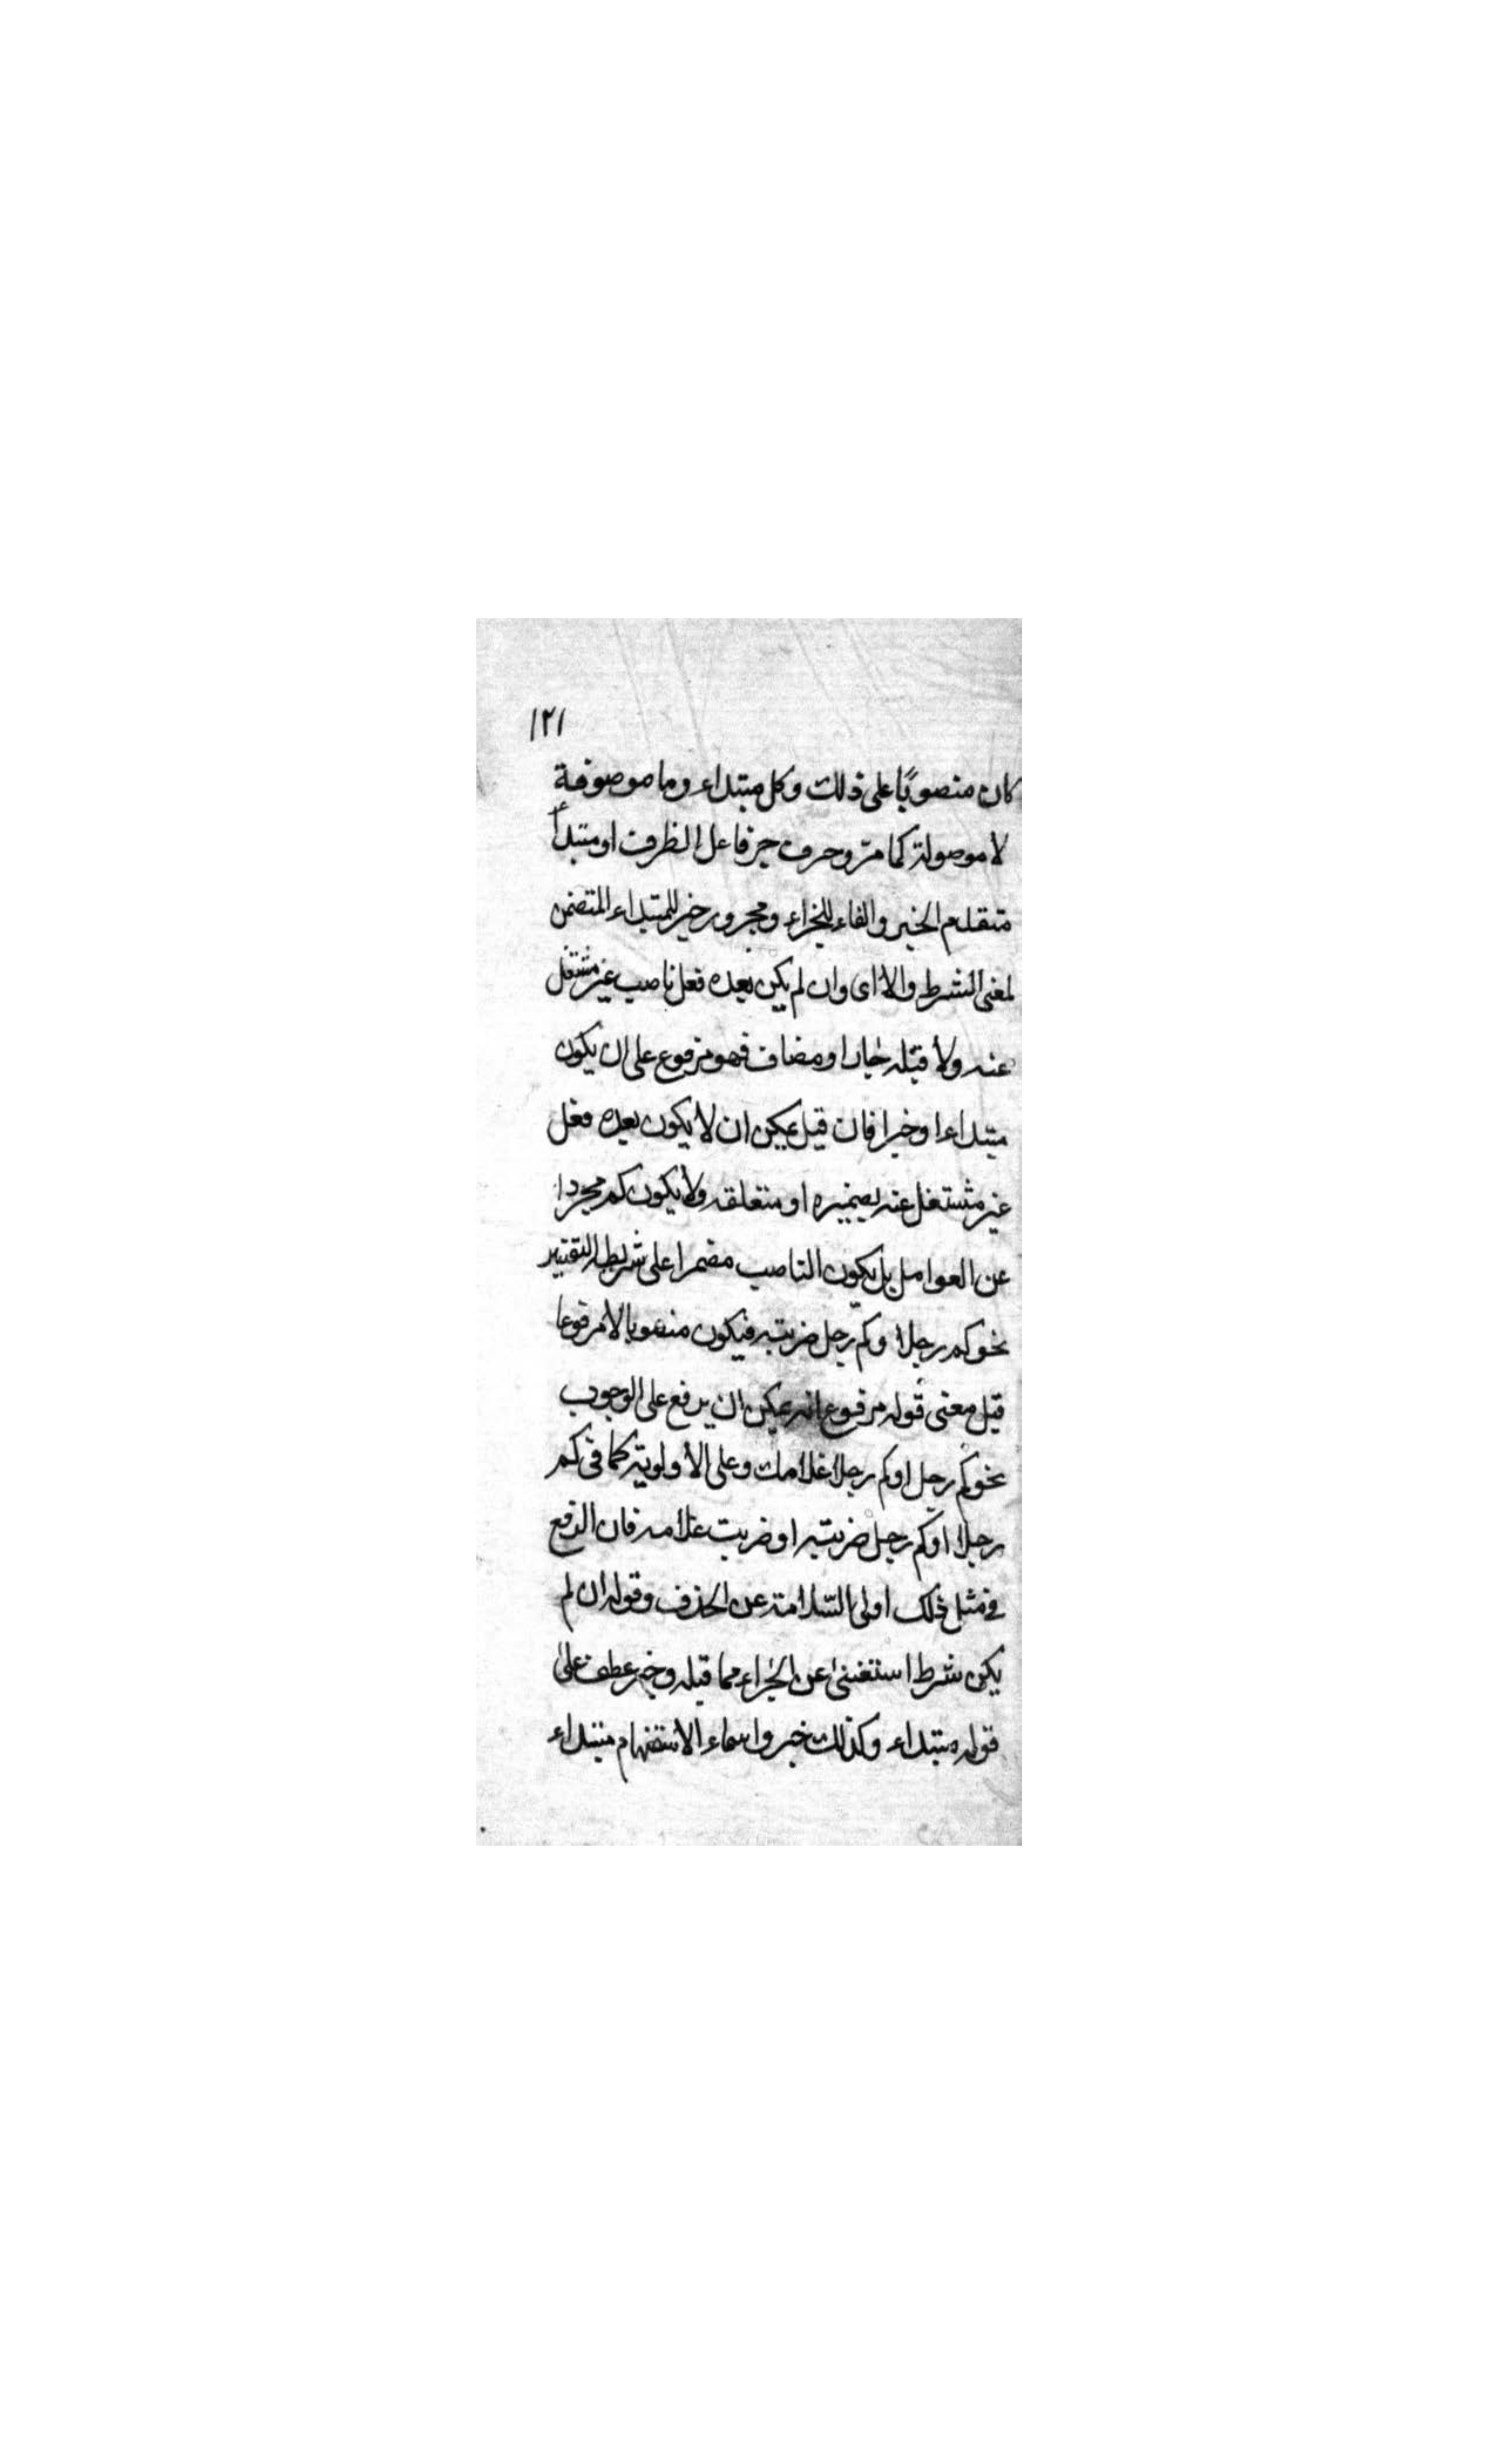 ١٢١
كان منصوبًا على ذلك وكل مبتداء وما موصوفة
لا موصولة كما مرّ وحرف جر فاعل الظرف او مبتدأ
متقدم الخبر والفاء للجزاء ومجرور خبر للمبتداء المتضمن
لمعنى الشرط والا اى وان لم يكن بعده فعل ناصب غير مشتغل
عنه ولا قبله جار او مضاف فهو مرفوع على ان يكون
مبتداءا وخبرا فان قيل يمكن ان لا يكون بعده فعل
غير مشتغل عنه بضميره او متعلقه ولا يكون كم مجردا
عن العوامل بل يكون الناصب مضمرا على شريطة التفسير
نحو كم رجلا وكم رجل ضربته فيكون منصوبا لا مرفوعا
قيل معنى قوله مرفوع انه يمكن ان يرفع على الوجوب
نحو كم رجل او كم رجلا غلامك وعلى الأولوية كما فى كم
رجلا او كم رجل ضربته او ضربت غلامه فان الرفع
فى مثل ذلك اولى للسلامة عن الحذف وقوله ان لم
يكن شرط استغنى عن الجزاء مما قبله وخبر عطف على
قوله مبتداء وكذلك خبر واسماء الاستفهام مبتداء